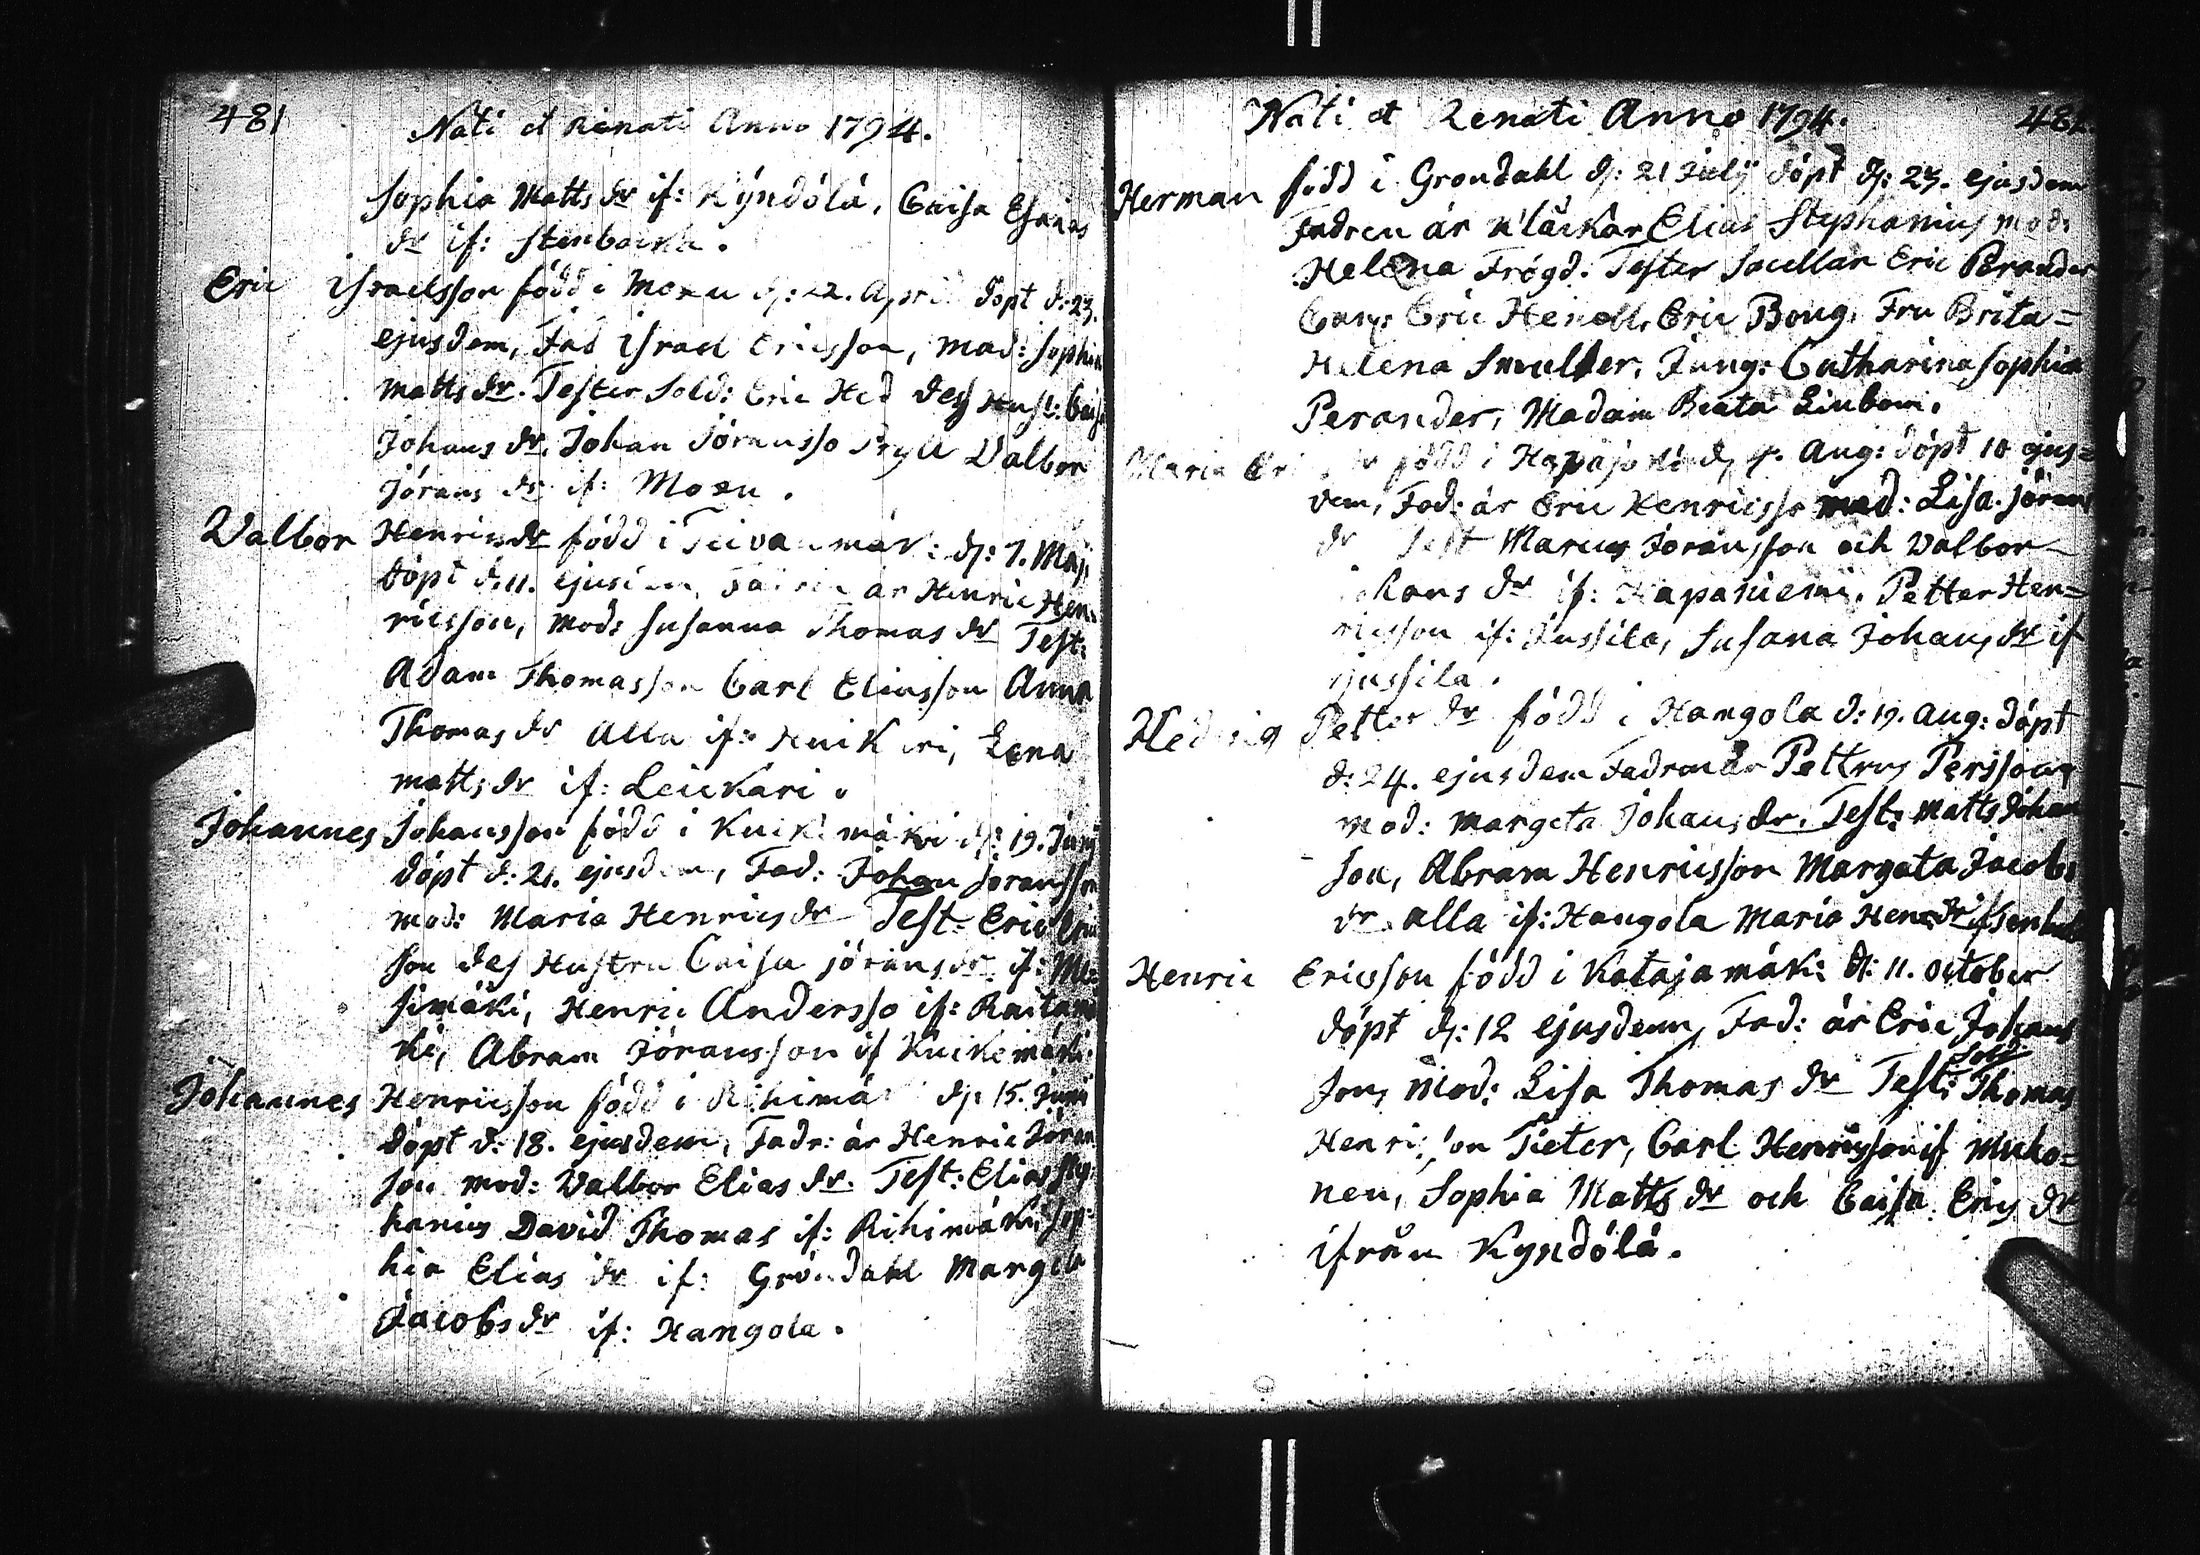 481
Nati et Renati Anno 1794.
Sophia Matts dr if: Kÿndölä, Caisa Esaias
dr if: Stenbacka.
Eric Israelsson född i Moxu d: 22. April döpt d: 23.
ejusdem, Fad Israel Ericsson, mod: Sophia
matts dr. Tester Sold: Eric Hed dess Hust: Caisa
Johans dr. Johan Jöransso Valbor
Jörans dr if: Moxu.
Valbor Henrics dr född i d: 7. Maji
döpt d. 11. ejusdem, Fadren är Henric Hen-
ricsson, mod: Susanna Thomas dr Test:
Adam Thomasson Carl Eliasson Anna
Thomas dr alla if: Lena
matts dr if: Leickari.
Johannes Johansson född i Kuikimäki d: 19. Junij
döpt d: 21. ejusdem, Fad: Johan Joransson
mod: Maria Henrics dr Test: Eric
son des Hustru Caisa jörans dr if: Me-
simäki, Henric Andersso if: Raitamä
ki, Abram Jöransson if Kuikemäki.
Johannes Henricsson född i Rihimäki d: 15. Juni
döpt d: 18. ejusdem, Fadr: är Henric Jöran
son mod: Valbor Elias dr. Test: Elias Step
hanius David Thomas if: Rihimäki, Sop-
hia Elias dr if: Gröndahl Margeta
Jacobs dr if: Hangola.
Nati et Renati Anno 1794. 481
Herman född i Grondahl d: 21 Julÿ döpt d: 23. ejusdem
Fadren är Elias Stephanius mod:
Helena Frögd. Tester Eric Perander
Eric Henell, Eric Bong, Fru Brita=
Helena Smulter, Jungr Catharina Sophia
Perander, Madam Beata Linbom.
Maria Erics dr född i Hapajoki d 4. Aug: döpt 10 ejus=
dem, Fad: är Eric Henricsso mod: Lisa. jörans
dr Test Marcus Joransson och Valbor
Johans dr if: Hapaniemi, Petter Hen=
ricsson if: Jussila, Susana Johans dr if
jussila.
Hedvig Petter dr född i Hangola d: 19. Aug: döpt
d: 24. ejusdem Fadren är Pettrus Persson
mod: Margeta Johans dr. Test: Matts Johan
son, Abram Henricsson Margeta Jacobs
dr alla if: Hangola Maria Hen dr if
Henric Ericsson född i Katajamäki d: 11. October
döpt d: 12 ejusdem, Fad: är Eric Johans
son, Mod: Lisa Thomas dr Test: Sold Thomas
Henricson Tieter, Carl Henricsson if Muho=
nen, Sophia Matts dr och Caisa Erics dr
ifrån Kyndölä.